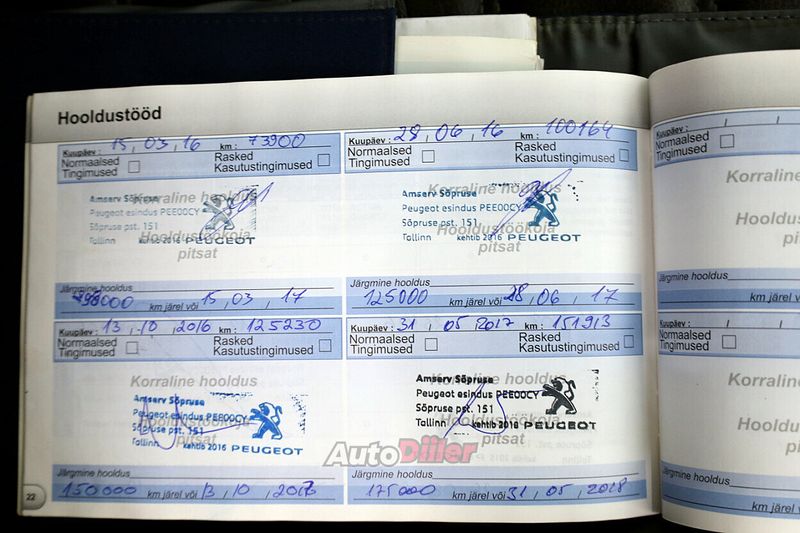 Hooldustööd
Kuupäev : 15, 03, 16 km : 73900
Normaalsed Tingimused
Rasked Kasutustingimused
Korraline hooldus
Hooldustöökoja pitsat
Amserv Sõpruse
Peugeot esindus PEE00CY
Sõpruse pst. 151
Tallinn kehtib 2016 PEUGEOT
Järgmine hooldus
98000 km järel või 15, 03, 17
Kuupäev : 28, 06, 16 km : 100164
Normaalsed Tingimused
Rasked Kasutustingimused
Korraline hooldus
Hooldustöökoja pitsat
Amserv Sõpruse
Peugeot esindus PEE00CY
Sõpruse pst. 151
Tallinn kehtib 2016 PEUGEOT
Järgmine hooldus
125000 km järel või 28, 06, 17
Kuupäev : 13, 10, 2016 km : 125230
Normaalsed Tingimused
Rasked Kasutustingimused
Korraline hooldus
Hooldustöökoja pitsat
Amserv Sõpruse
Peugeot esindus PEE00CY
Sõpruse pst. 151
Tallinn kehtib 2016 PEUGEOT
Järgmine hooldus
150000 km järel või 13, 10, 2017
Kuupäev : 31, 05, 2017 km : 151913
Normaalsed Tingimused
Rasked Kasutustingimused
Korraline hooldus
Hooldustöökoja pitsat
Amserv Sõpruse
Peugeot esindus PEE00CY
Sõpruse pst. 151
Tallinn kehtib 2016 PEUGEOT
Järgmine hooldus
175000 km järel või 31, 05, 2018
22
AutoDiiler
Kuupäev :
Normaalsed Tingimused
Korraline
Järgmine hooldus
km järel
Kuupäev :
Normaalsed Tingimused
Korraline
Järgmine hooldus
km järel